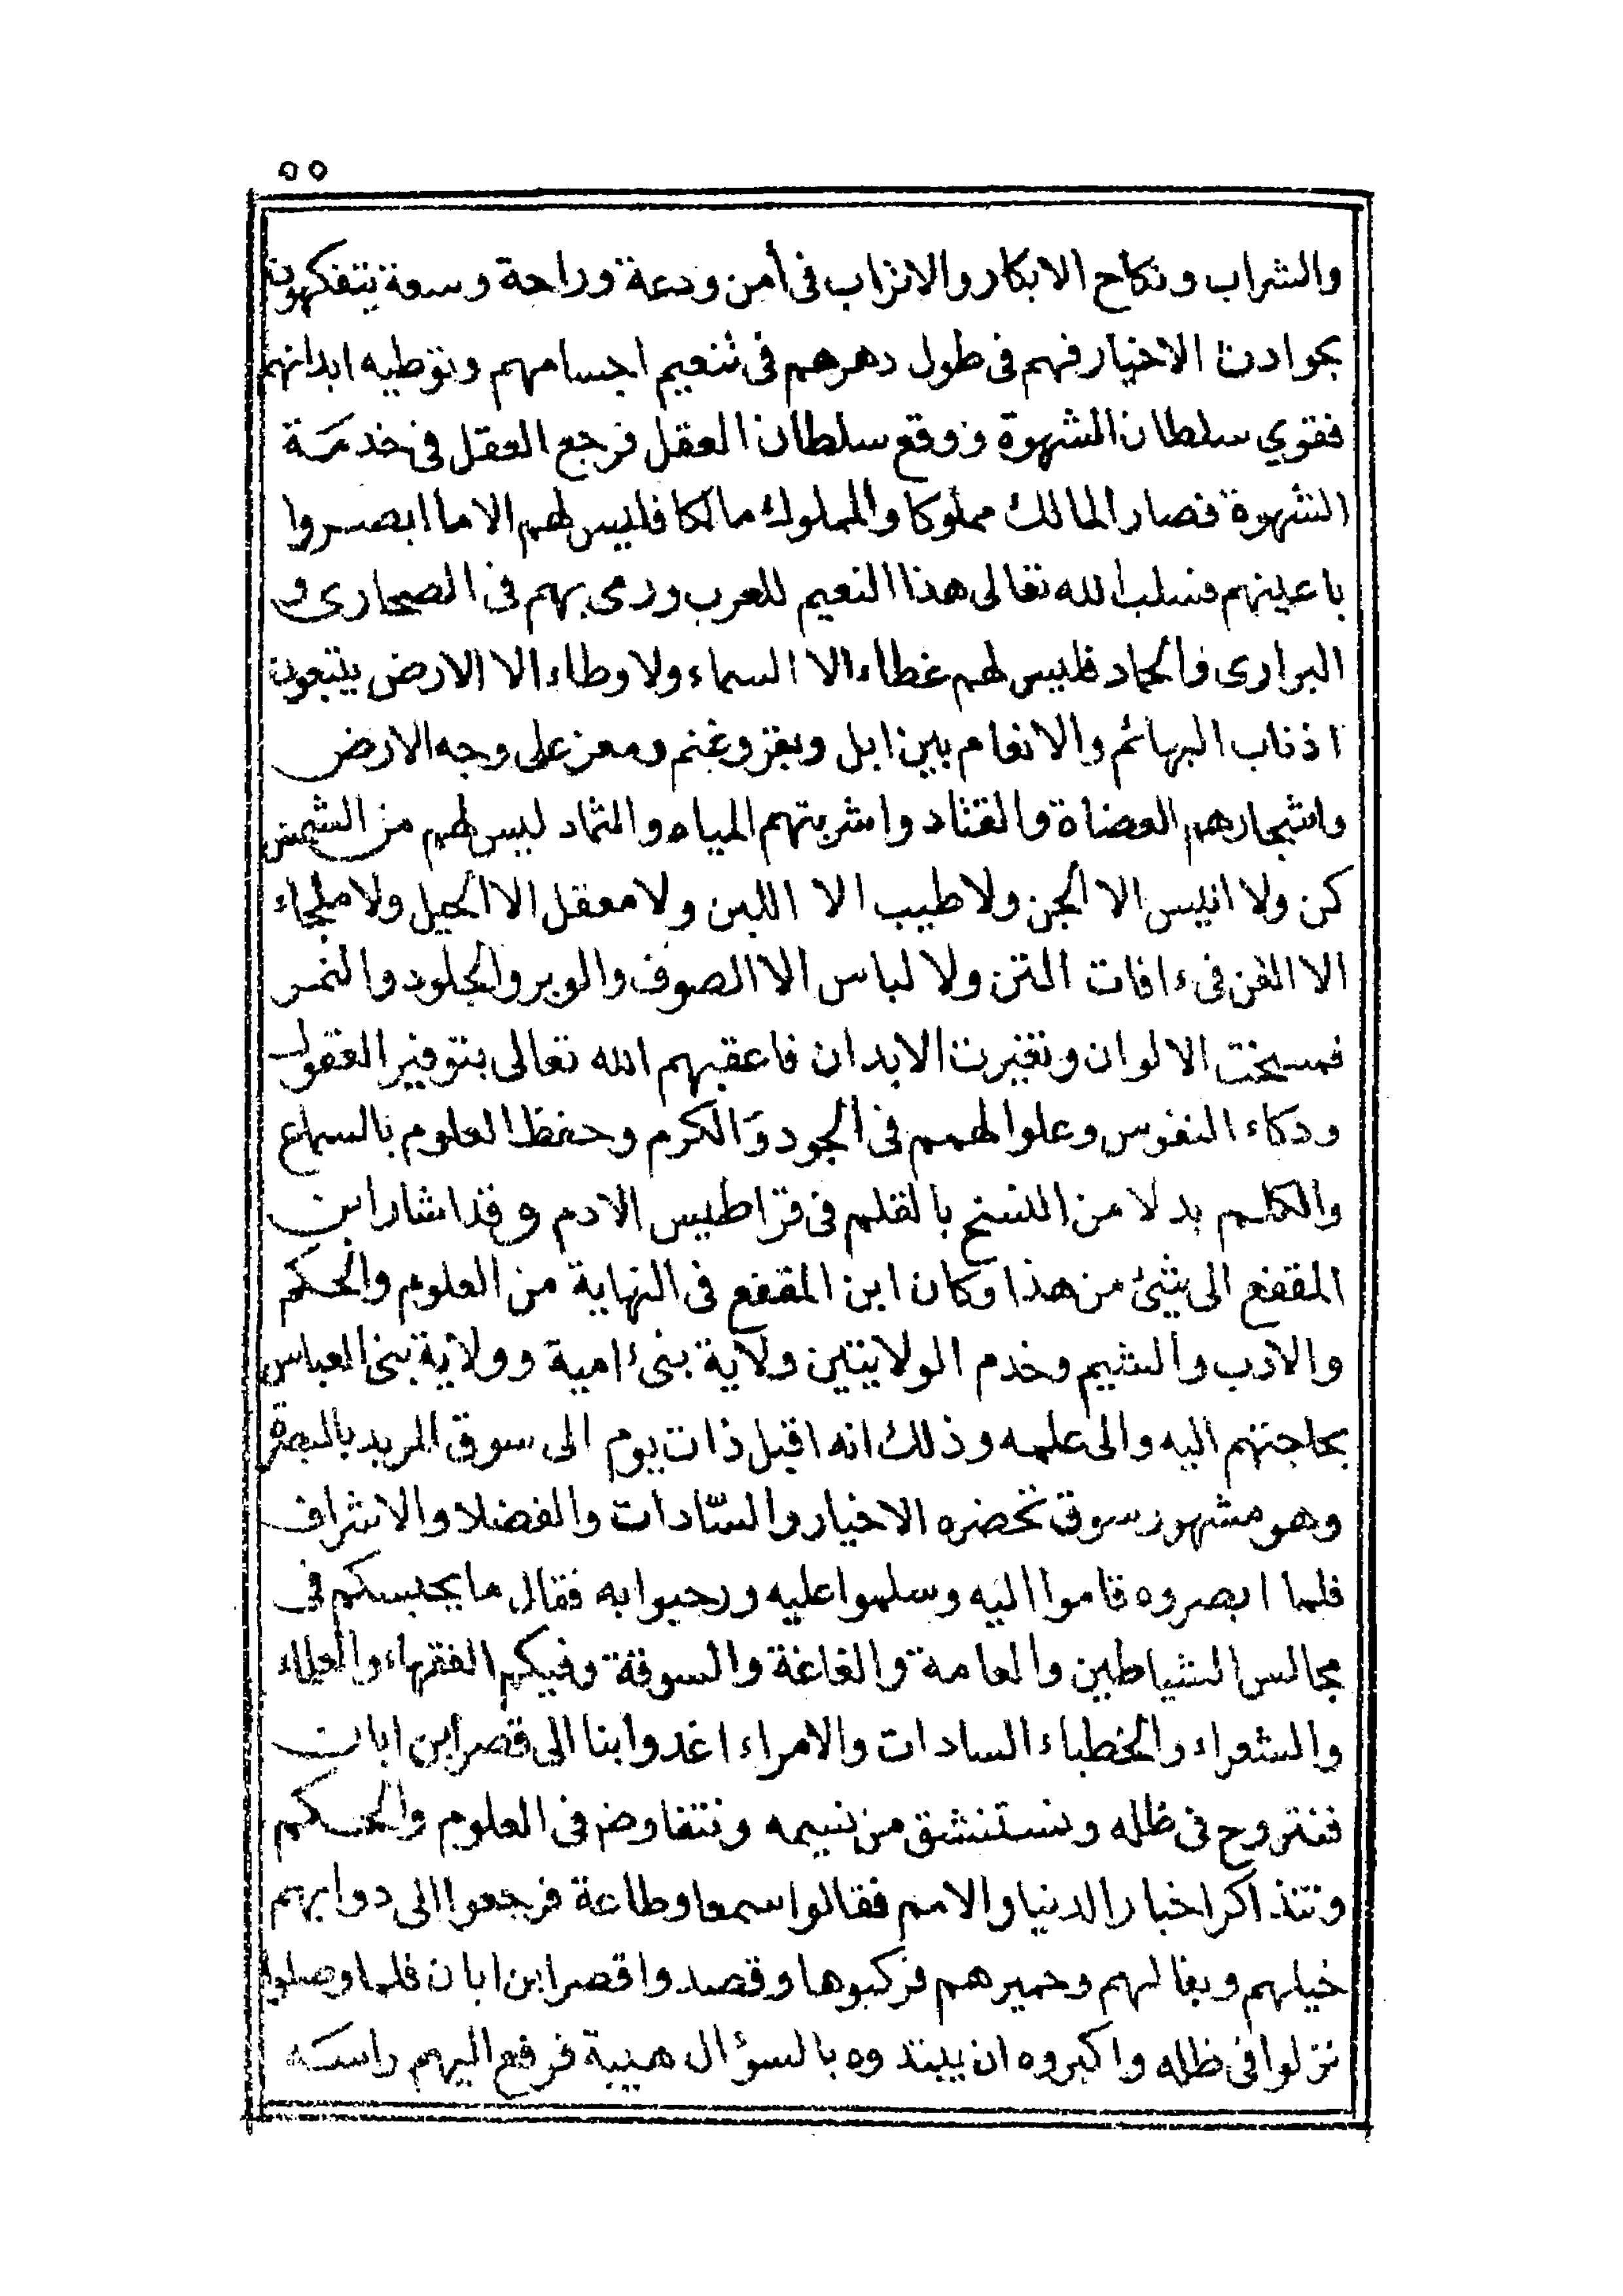 ٥٥
والشراب ونكاح الابكار والاتراب فى أمن ودعة وراحة وسعة يتفكهون
بحوادث الاخيار فهم فى طول دهرهم فى تنعيم اجسامهم وتوطيه ابدانهم
فقوي سلطان الشهوة ووقع سلطان العقل فرجع العقل فى خدمة
الشهوة فصار المالك مملوكا والمملوك مالكا فليس لهم الا ما ابصروا
باعينهم فسلب الله تعالى هذا النعيم للعرب ورمى بهم فى الصحارى و
البرارى والجماد فليس لهم غطاء الا السماء ولا وطاء الا الارض يتبعون
اذناب البهائم والانعام بين ابل وبقر وغنم ومعز على وجه الارض
واشجارهم العضاة والقتاد واشربتهم المياه والثماد ليس لهم من الشمس
كن ولا انيس الا الجن ولا طيب الا اللبن ولا معقل الا الخيل ولا ملجاء
الا القن فى ءافات التن ولا لباس الا الصوف والوبر والجلود والنمر
فمسخت الالوان وتغيرت الابدان فاعقبهم الله تعالى بتوفير العقول
وذكاء النفوس وعلو الهمم فى الجود وَالكرم وحفظ العلوم بالسماع
والكلم بدلا من النسخ بالقلم فى قراطيس الادم وقد اشار ابن
المقفع الى شئ من هذا وكان ابن المقفع فى النهاية من العلوم والحكم
والادب والشيم وخدم الولايتين ولاية بنى امية وولاية بنى العباس
بحاجتهم اليه والى علمه وذلك انه اقبل ذات يوم الى سوق المربد بالبصرة
وهو مشهور سوق تحضره الاخيار والسّادات والفضلا والاشراف
فلما ابصروه قاموا اليه وسلموا عليه ورحبوا به فقال ما يجلسكم فى
مجالس الشياطين والعامة والغاغة والسوقة وفيكم الفقهاء والعلماء
والشعراء والخطباء السادات والامراء اغدوا بنا الى قصر ابن ابان
فنتروح فى ظله ونستنشق من نسيمه ونتفاوض فى العلوم والحكم
ونتذاكر اخبار الدنيا والامم فقالوا سمعا وطاعة فرجعوا الى دوابهم
خيلهم وبغالهم وحميرهم فركبوها وقصدوا قصر ابن ابان فلما وصلوا
نزلوا فى ظله واكبروه ان يبتدوه بالسؤال هيبة فرفع اليهم راسه